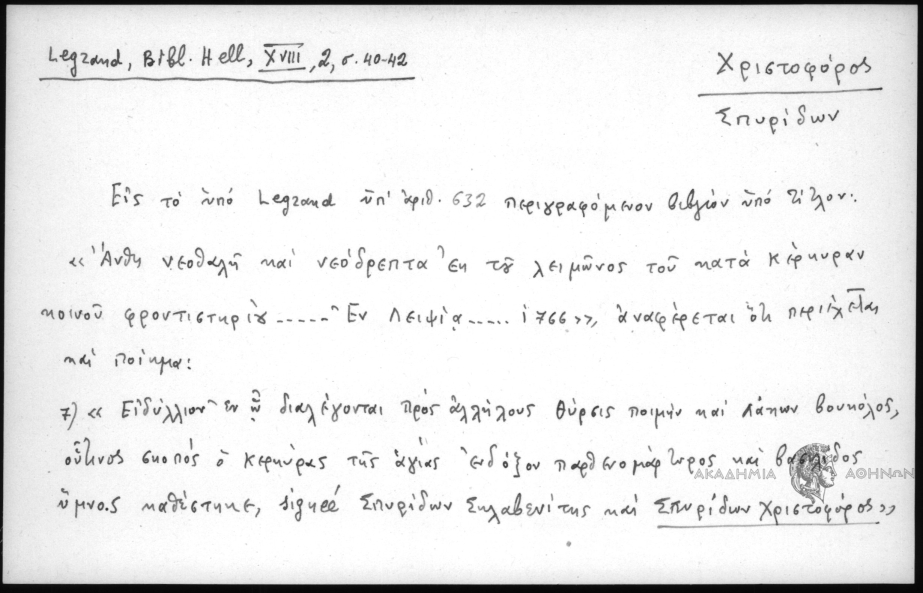 Legrand, Bibl. Hell, XVIII, 2, σ. 40-42
Χριστοφόρος
Σπυρίδων
Εἰς τὸ ὑπὸ Legrand ὑπ' ἀριθ. 632 περιγραφόμενον βιβλίον ὑπὸ τίτλον:
«Ἄνθη νεοθαλῆ καὶ νεόδρεπτα ἐκ τοῦ λειμῶνος τοῦ κατὰ Κέρκυραν
κοινοῦ φροντιστηρίου ..... Ἐν Λειψίᾳ ..... 1766», ἀναφέρεται ὅτι περιέχεται
καὶ ποίημα:
7) « Εἰδύλλιον ἐν ᾧ διαλέγονται πρὸς ἀλλήλους Θύρσις ποιμὴν καὶ Λάκων βουκόλος,
οὗτινος σκοπὸς ὁ Κερκύρας τῆς ἁγίας ἐνδόξου παρθενομάρτυρος καὶ βασιλίδος
ὕμνος καθέστηκε, signeé Σπυρίδων Σκλαβενίτης καὶ Σπυρίδων Χριστοφόρος»
ΑΚΑΔΗΜΙΑ ΑΘΗΝΩΝ